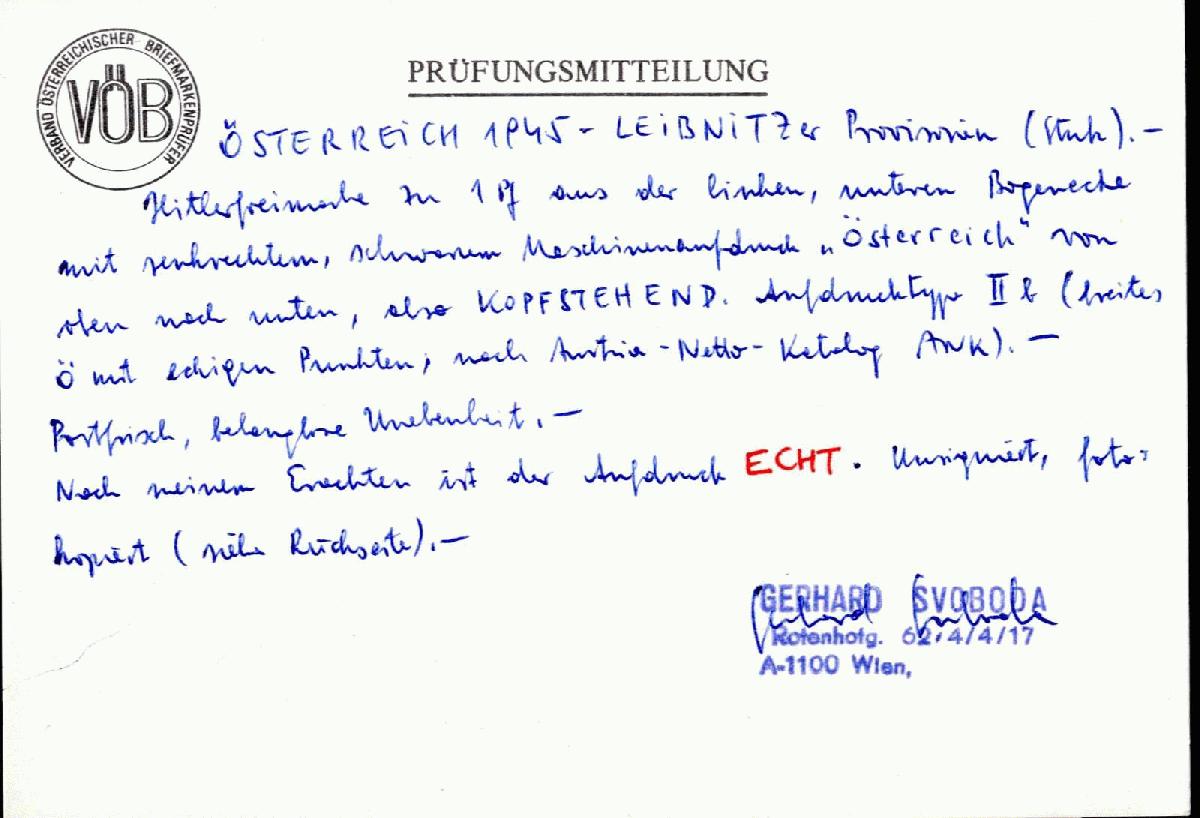 VERBAND ÖSTERREICHISCHER BRIEFMARKENPRÜFER
VÖB
PRÜFUNGSMITTEILUNG
ÖSTERREICH 1945 - LEIBNITZer Provisorien (Stmk). -
Hitlerfreimarke zu 1 Pf aus der linken, unteren Bogenecke
mit senkrechtem, schwarzem Maschinenaufdruck „Österreich" von
oben nach unten, also KOPFSTEHEND. Aufdrucktype II b (breites
Ö mit eckigen Punkten, nach Austria-Netto-Katalog ANK). -
Postfrisch, belanglose Unebenheit. -
Nach meinem Erachten ist der Aufdruck ECHT. Unsigniert, foto=
kopiert (siehe Rückseite). -
GERHARD SVOBODA
Rotenhofg. 62/4/4/17
A-1100 Wien,